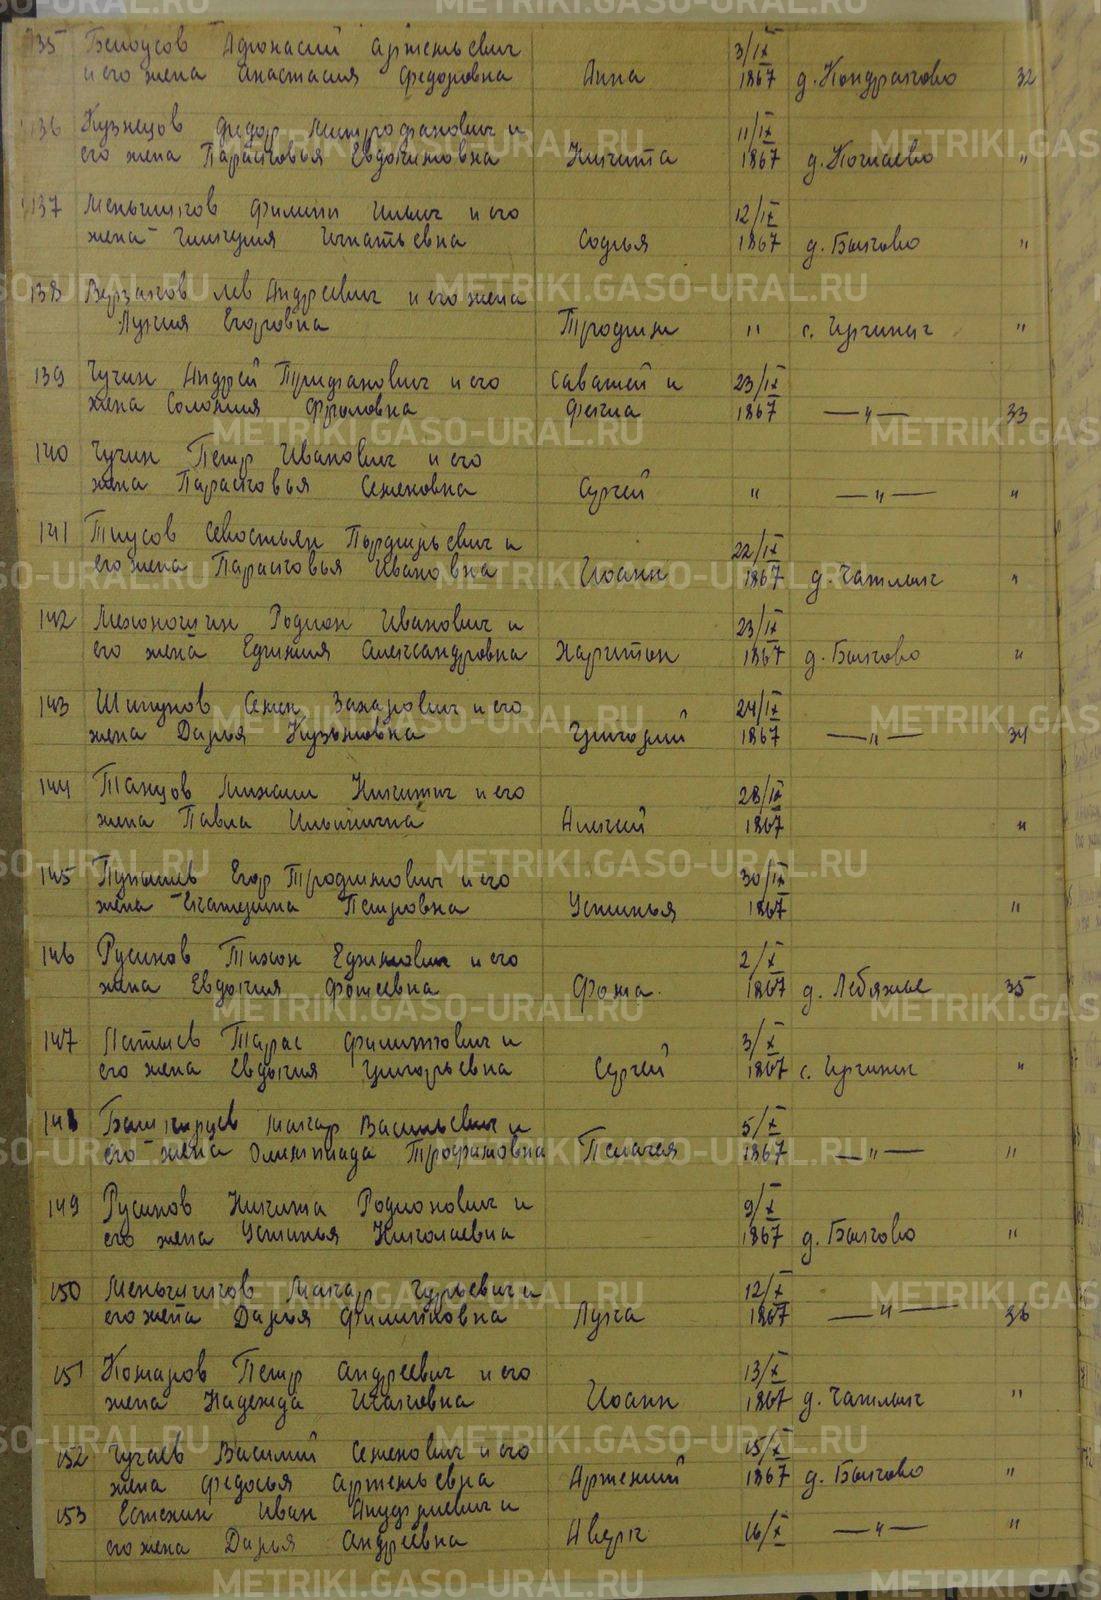 135 Белоусов Афонасий Артемьевич
и его жена Анастасия Федоровна Анна 3/IX 1867 д. Кондрахово 32
136 Кузнецов Федор Митрофанович и
его жена Парасковья Евдокимовна Никита 11/IX 1867 д. "
137 Меньшиков Филипп Ильич и его
жена Гликерия Игнатьевна Софья 12/IX 1867 д. Быково "
138 Лев Андреевич и его жена
Лукия Егоровна Трофим " с. Иргинск "
139 Чучин Андрей Трифанович и его Саватей и
жена Соломия Фроловна Фекла 23/IX 1867 —"— 33
140 Чучин Петр Иванович и его
жена Парасковья Семеновна Сергей " —"— "
141 Севостьян Порфирьевич и
его жена Парасковья Ивановна Иоанн 22/IX 1867 д. Чатлык "
142 Мехоношин Родион Иванович и
его жена Ефимия Александровна Харитон 23/IX 1867 д. Быково "
143 Шипунов Семен Захарович и его
жена Дарья Кузьмовна Григорий 24/IX 1867 —"— 34
144 Танцов Михаил Никитич и его
жена Павла Ильинична Алексей 28/IX 1867 "
145 Егор Трофимович и его
жена Екатерина Петровна Устинья 30/IX 1867 "
146 Русинов Тихон Ефимович и его
жена Евдокия Фотеевна Фома. 2/X 1867 д. Лебяжье 35
147 Латыев Тарас Филиппович и
его жена Евдокия Григорьевна Сергей 3/X 1867 с. Иргинск "
148 Башкирцев Макар Васильевич и
его жена Олимпиада Трофимовна Пелагея 5/X 1867 —"— "
149 Русинов Никита Родионович и
его жена Устинья Николаевна 9/X 1867 д. Быково "
150 Меньшиков Макар Гурьевич и
его жена Дарья Филипповна Лука 12/X 1867 —"— 36
151 Комаров Петр Андреевич и его
жена Надежда Исаковна Иоанн 13/X 1867 д. Чатлык "
152 Чугаев Василий Семенович и его
жена Федосья Артемьевна Артемий 15/X 1867 д. Быково "
153 Естехин Иван и
его жена Дарья Андреевна Аверк 16/X —"— "
METRIKI.GASO-URAL.RU